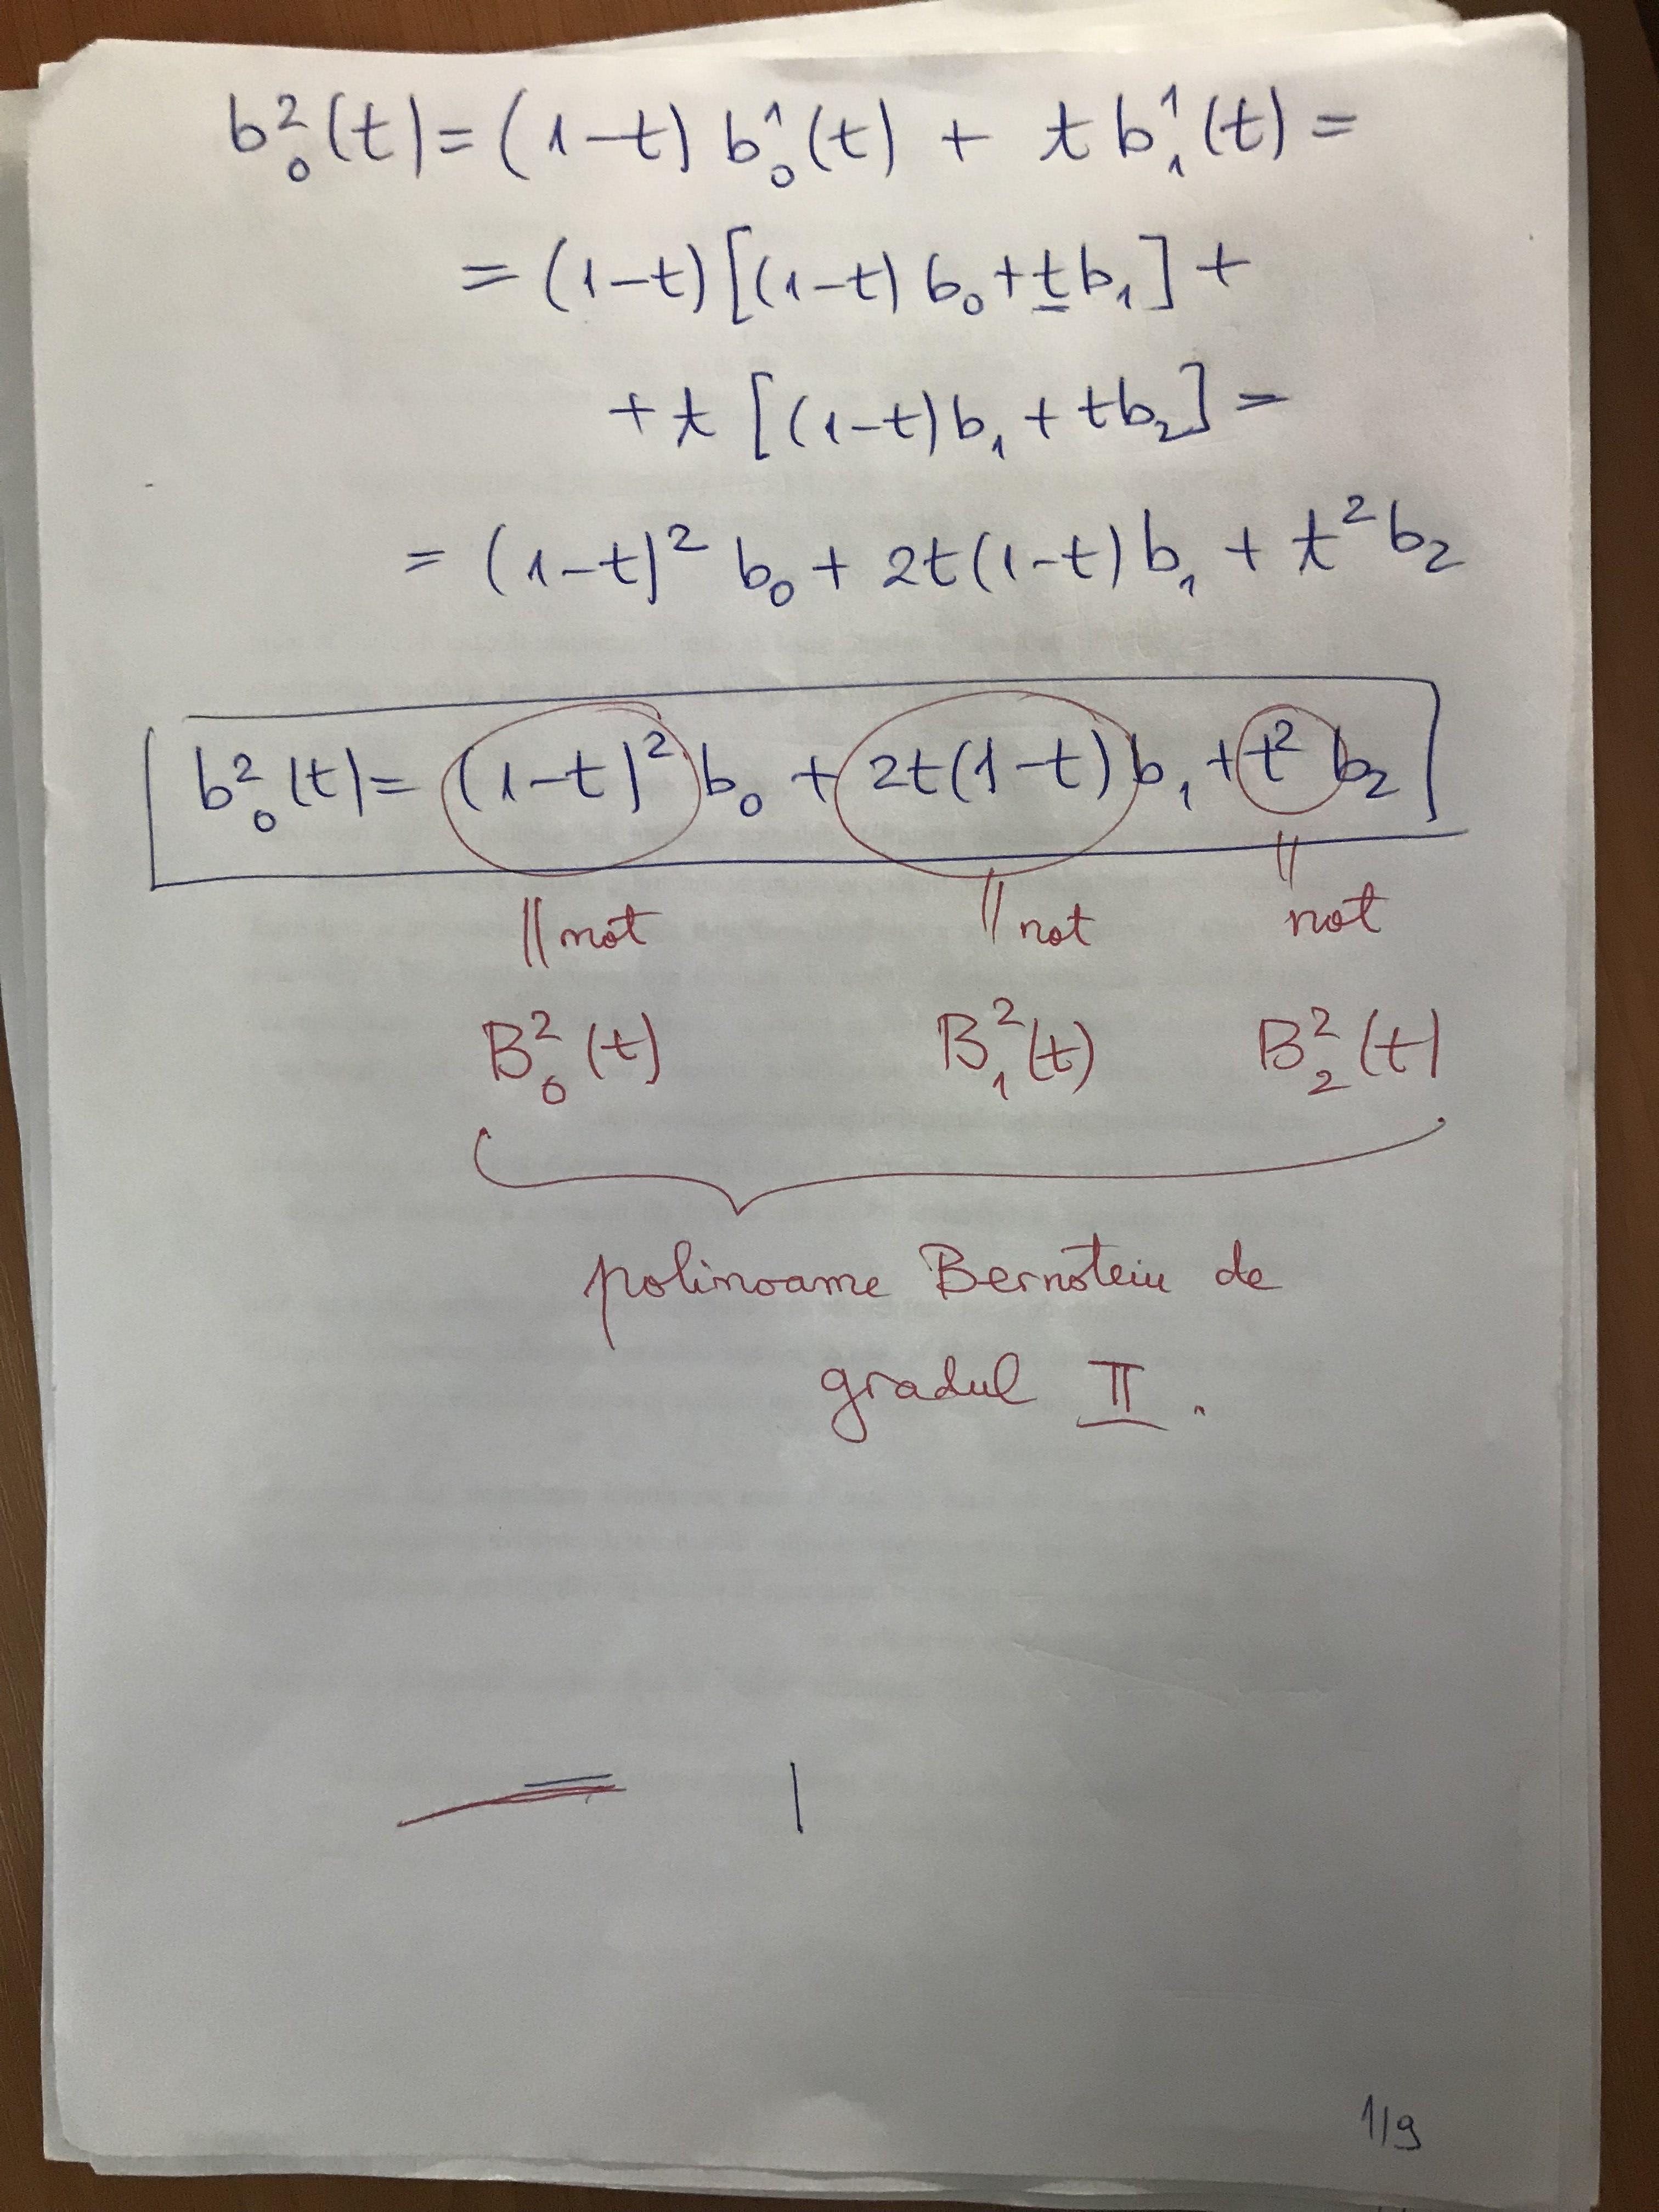 b₀²(t) = (1-t) b₀¹(t) + t b₁¹(t) =
= (1-t)[(1-t) b₀ + t b₁] +
+ t [(1-t) b₁ + t b₂] =
= (1-t)² b₀ + 2t(1-t) b₁ + t² b₂
b₀²(t) = (1-t)² b₀ + 2t(1-t) b₁ + t² b₂
|| not || not || not
B₀²(t) B₁²(t) B₂²(t)
polinoame Bernstein de
gradul II.